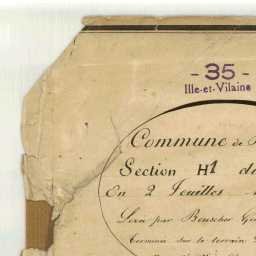 - 35 -
Ille-et-Vilaine
Commune de
Section H1 de
En 2 Feuilles
Levé par
Terminé sur le terrain